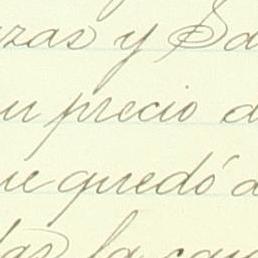 zas y Sa
u precio d
ue quedó a
das la cau